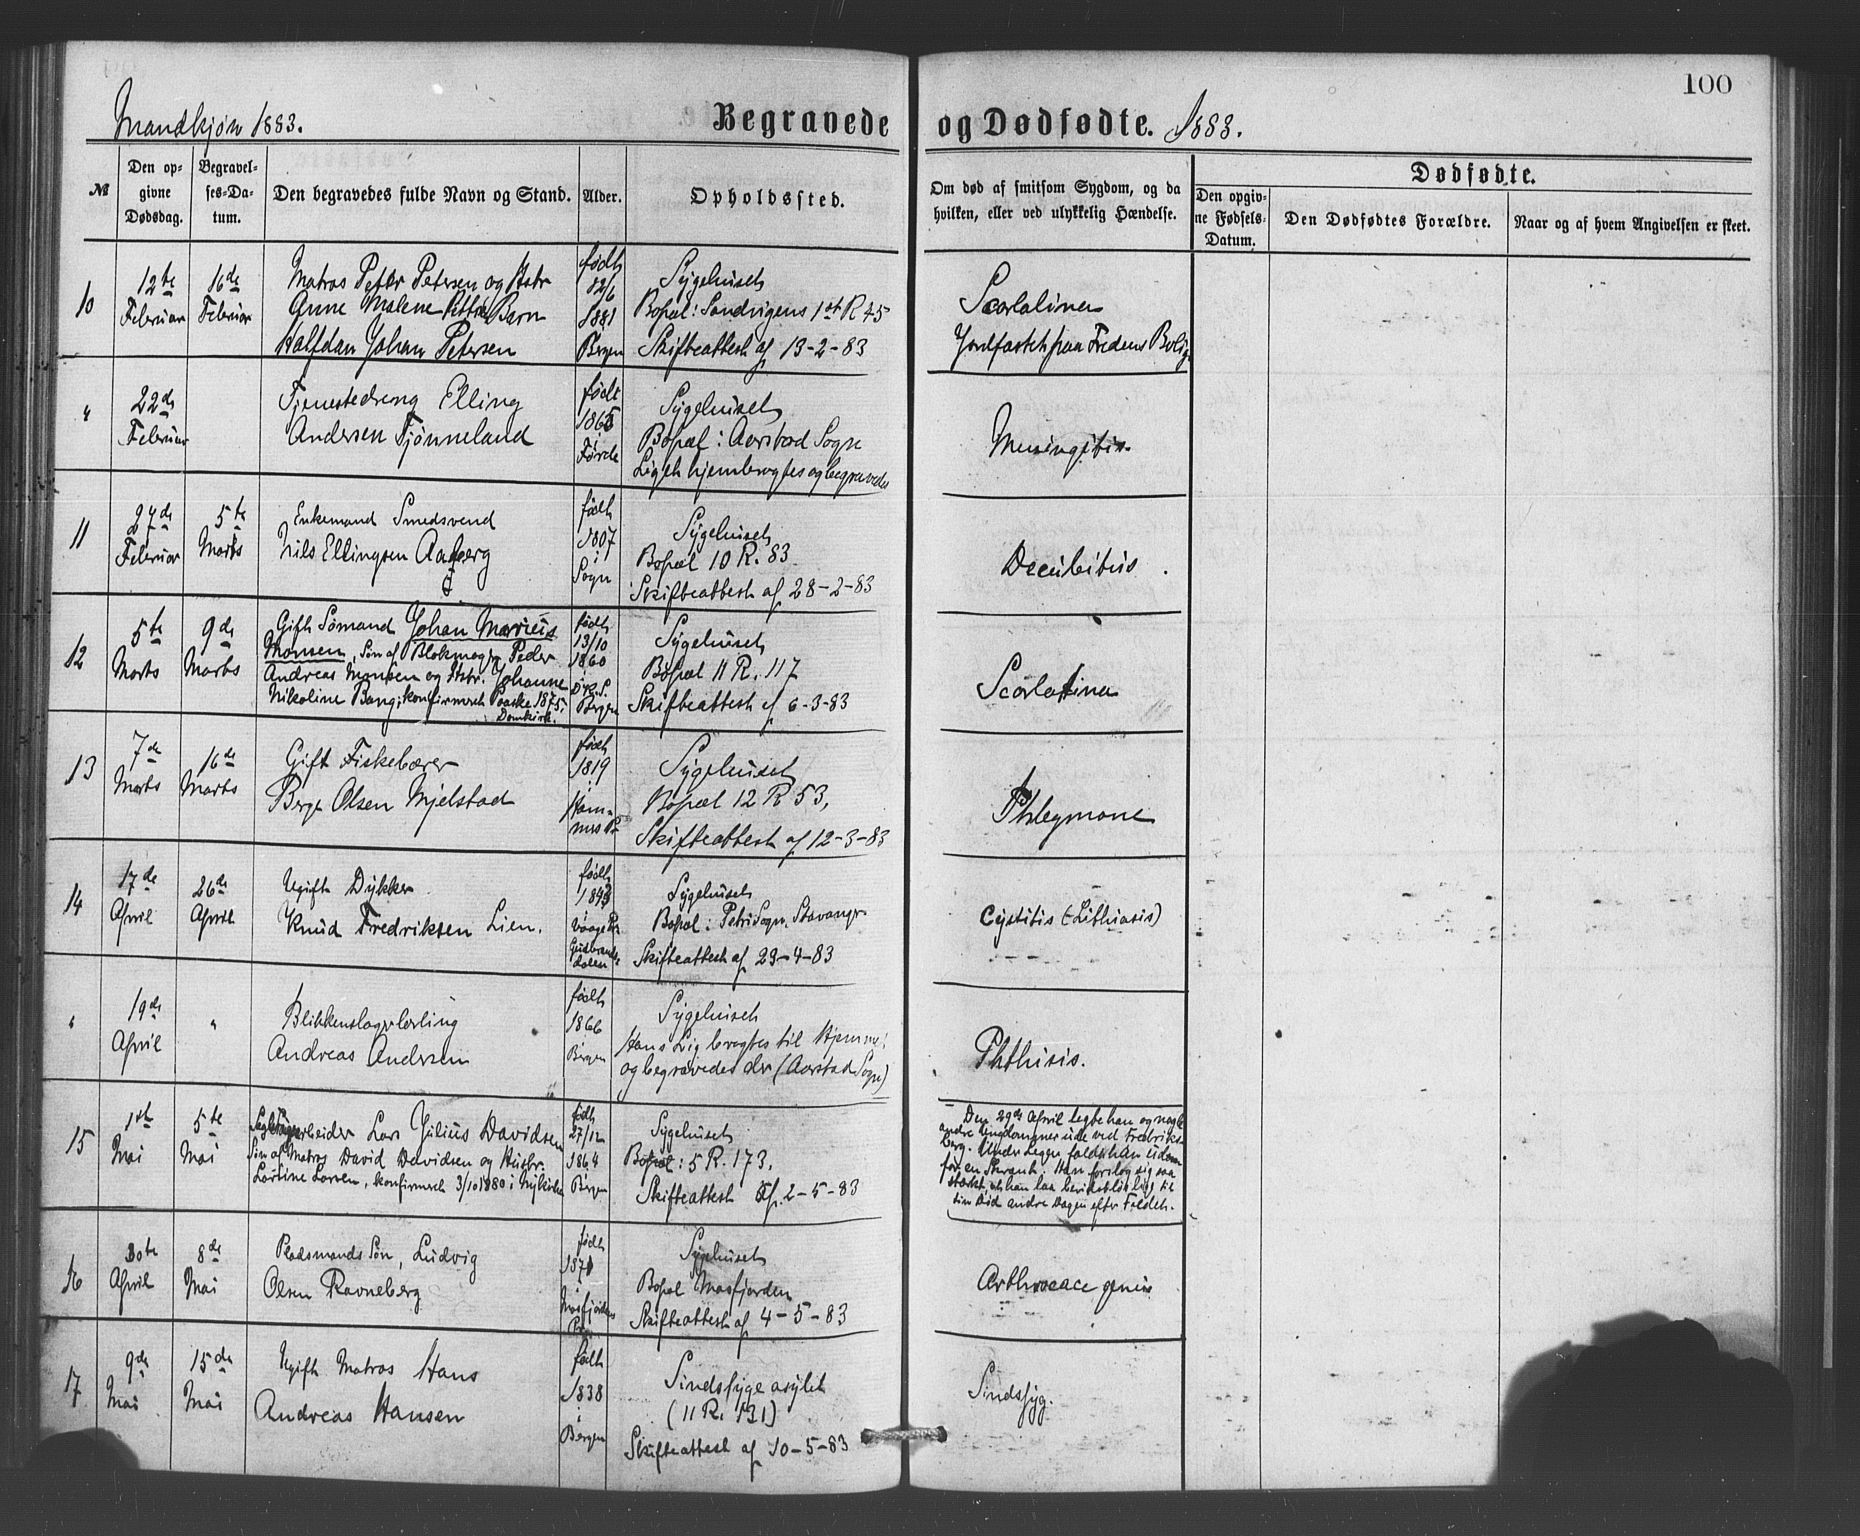 100
Mandkjøn 1883.
Begravede og Dødfødte. 1883.
№
Den opgivne Dødsdag.
Begravelses-Datum.
Den begravedes fulde Navn og Stand.
Alder.
Opholdssted.
Om død af smitsom Sygdom, og da hvilken, eller ved ulykkelig Hændelse.
Dødfødte.
Den opgivne Fødsels-Datum.
Den Dødfødtes Forældre.
Naar og af hvem Angivelsen er skeet.
10
12te Februar
16de Februar
Matros Peter Petersen og Hstr
Anne Malene Barn
Halfdan Johan Petersen
født 12/6 1881 Bergen
Sygehuset
Bopæl: Sandvigens 1st R 45
Skifteattest af 13-2-83
Scarlatina
Jordfæstet paa Fredens Bolig
"
22de Februar
Tjenestedreng Elling
Andersen Tjønneland
født 1865 i Førde
Sygehuset
Bopæl: Aarstad Sogn
Liget hjembragtes og begravedes
Meningitis.
11
27de Februar
5te Marts
Enkemand Smedsvend
Nils Ellingsen Aaberg
født 1807 i Sogn
Sygehuset
Bopæl 10 R. 83
Skifteattest af 28-2-83
Decubitus
12
5te Marts
9de Marts
Gift Sømand Johan Marcus
Monsen, Søn af Blokmager Peder
Andreas Monsen og Hstr. Johanne
Nikoline Bang; konfirmeret Paaske 1875,
Domkirk.
født 13/10 1860 D.k.S. Bergen
Sygehuset
Bopæl 11 R. 117
Skifteattest af 6-3-83
Scarlatina
13
7de Marts
16de Marts
Gift Fiskebærer
Berge Olsen Mjelstad
født 1819 i Hammer Pr
Sygehuset
Bopæl 12 R 53,
Skifteattest af 12-3-83
Phlegmone
14
17de April
26de April
Ugift Dykker
Knud Fredriksen Lien.
født 1843 Vaage Pr Gudbrandsdalen
Sygehuset
Bopæl: Petri Sogn, Stavanger
Skifteattest af 23-4-83
Cystitis (Lithiasis)
"
19de April
"
Blikkenslagerlærling
Andreas Andersen
født 1866 Bergen
Sygehuset
Hans Lig bragtes til Hjemmet
og begravedes der (Aarstad Sogn)
Phthisis.
15
1ste Mai
5te Mai
arbeider Lars Julius Davidsen
Søn af Matros David Davidsen og Hustr.
Lartine Larsen, konfirmeret 3/10 1880 i Nykirken
født 27/12 1864 Bergen
Sygehuset
Bopæl: 5 R. 173.
Skifteattest af. 2-5-83
Den 29de April legte han og nogle
andre Ungdommer ude ved Fredriks
berg. Under Legen faldt han udover
for en Skrænt. Han forslog sig saa
stærkt at han laa bevidstløs lige til
sin Død anden Dagen efter Faldet.
16
30te April
8de Mai
Pladsmands Søn, Ludvig
Olsen Ravneberg
født 1871 i Masfjorden Pr.
Sygehuset
Bopæl Masfjorden
Skifteattest af 4-5-83
Arthrocace genus
17
9de Mai
15de Mai
Ugift Matros Hans
Andreas Hansen
født 1838 i Bergen
Sindssygeasylet
(11 R. 131)
Skifteattest af 10-5-83
Sindssyg.